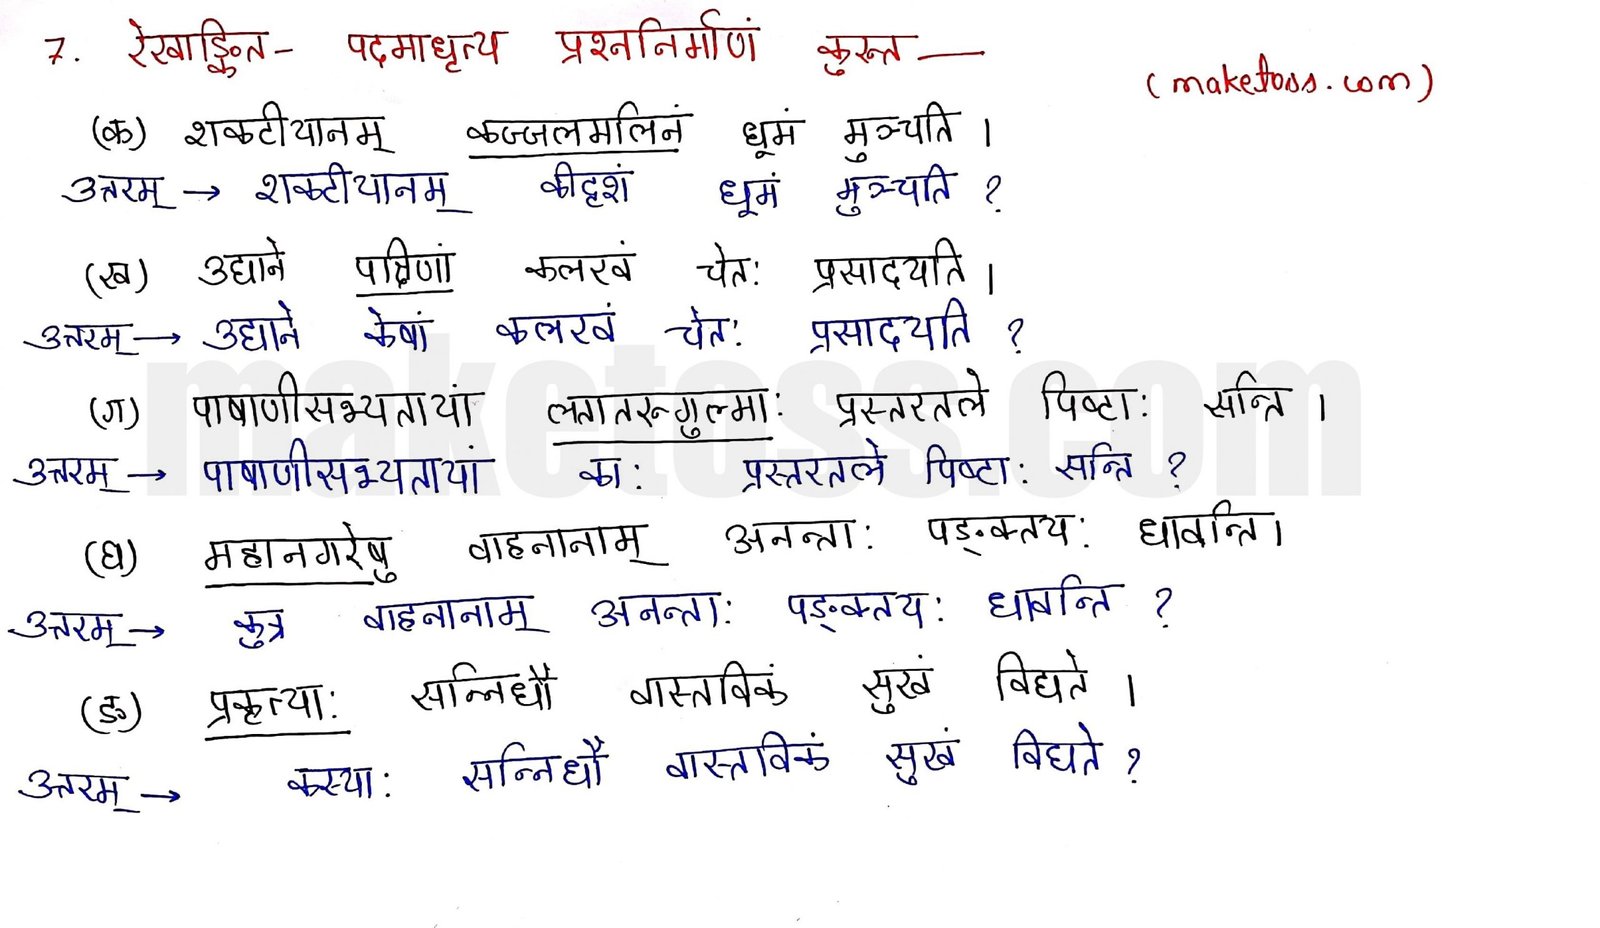 7. रेखाङ्कित- पदमाधृत्य प्रश्ननिर्माणं कुरुत —
(maketoss.com)
(क) शकटीयानम् कज्जलमलिनं धूमं मुञ्चति ।
उत्तरम् → शकटीयानम् कीदृशं धूमं मुञ्चति ?
(ख) उद्याने पक्षिणां कलरवं चेतः प्रसादयति ।
उत्तरम् → उद्याने केषां कलरवं चेतः प्रसादयति ?
maketoss.com
(ग) पाषाणीसभ्यतायां लतातरुगुल्माः प्रस्तरतले पिष्टाः सन्ति ।
उत्तरम् → पाषाणीसभ्यतायां काः प्रस्तरतले पिष्टाः सन्ति ?
(घ) महानगरेषु वाहनानाम् अनन्ताः पङ्क्तयः धावन्ति ।
उत्तरम् → कुत्र वाहनानाम् अनन्ताः पङ्क्तयः धावन्ति ?
(ङ) प्रकृत्याः सन्निधौ वास्तविकं सुखं विद्यते ।
उत्तरम् → कस्याः सन्निधौ वास्तविकं सुखं विद्यते ?